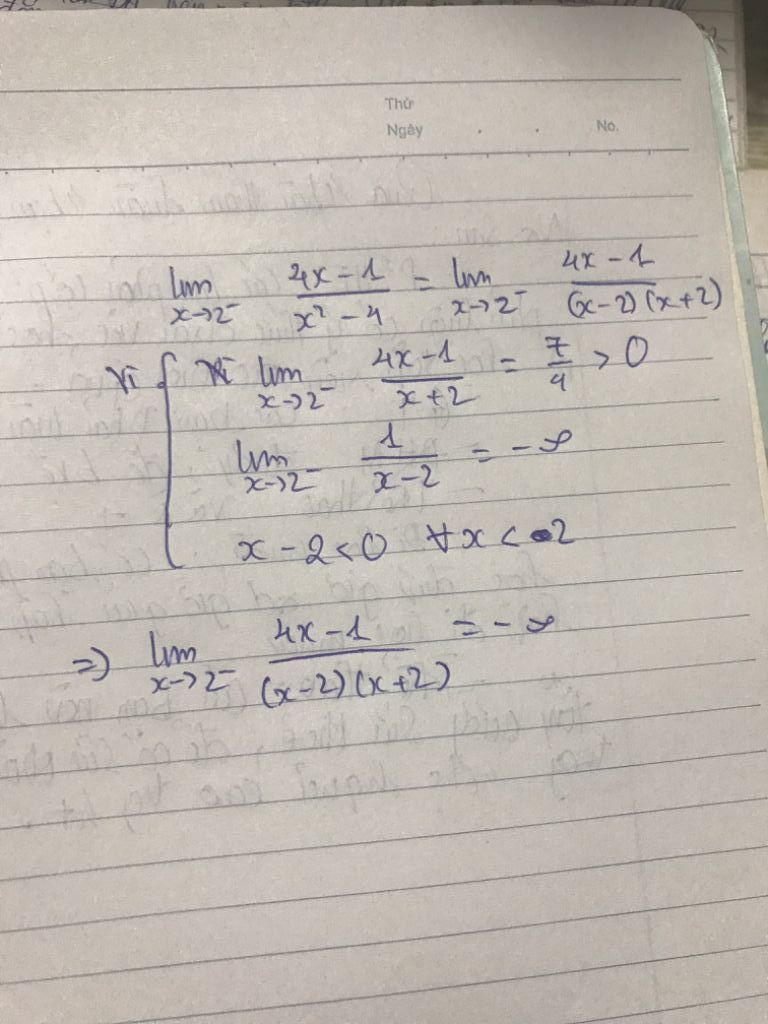 Thứ
Ngày . . No.
lim x→2⁻ (4x-1)/(x²-4) = lim x→2⁻ (4x-1)/((x-2)(x+2))
Vì { lim x→2⁻ (4x-1)/(x+2) = 7/4 > 0
lim x→2⁻ 1/(x-2) = -∞
x-2<0 ∀x<2
=> lim x→2⁻ (4x-1)/((x-2)(x+2)) = -∞